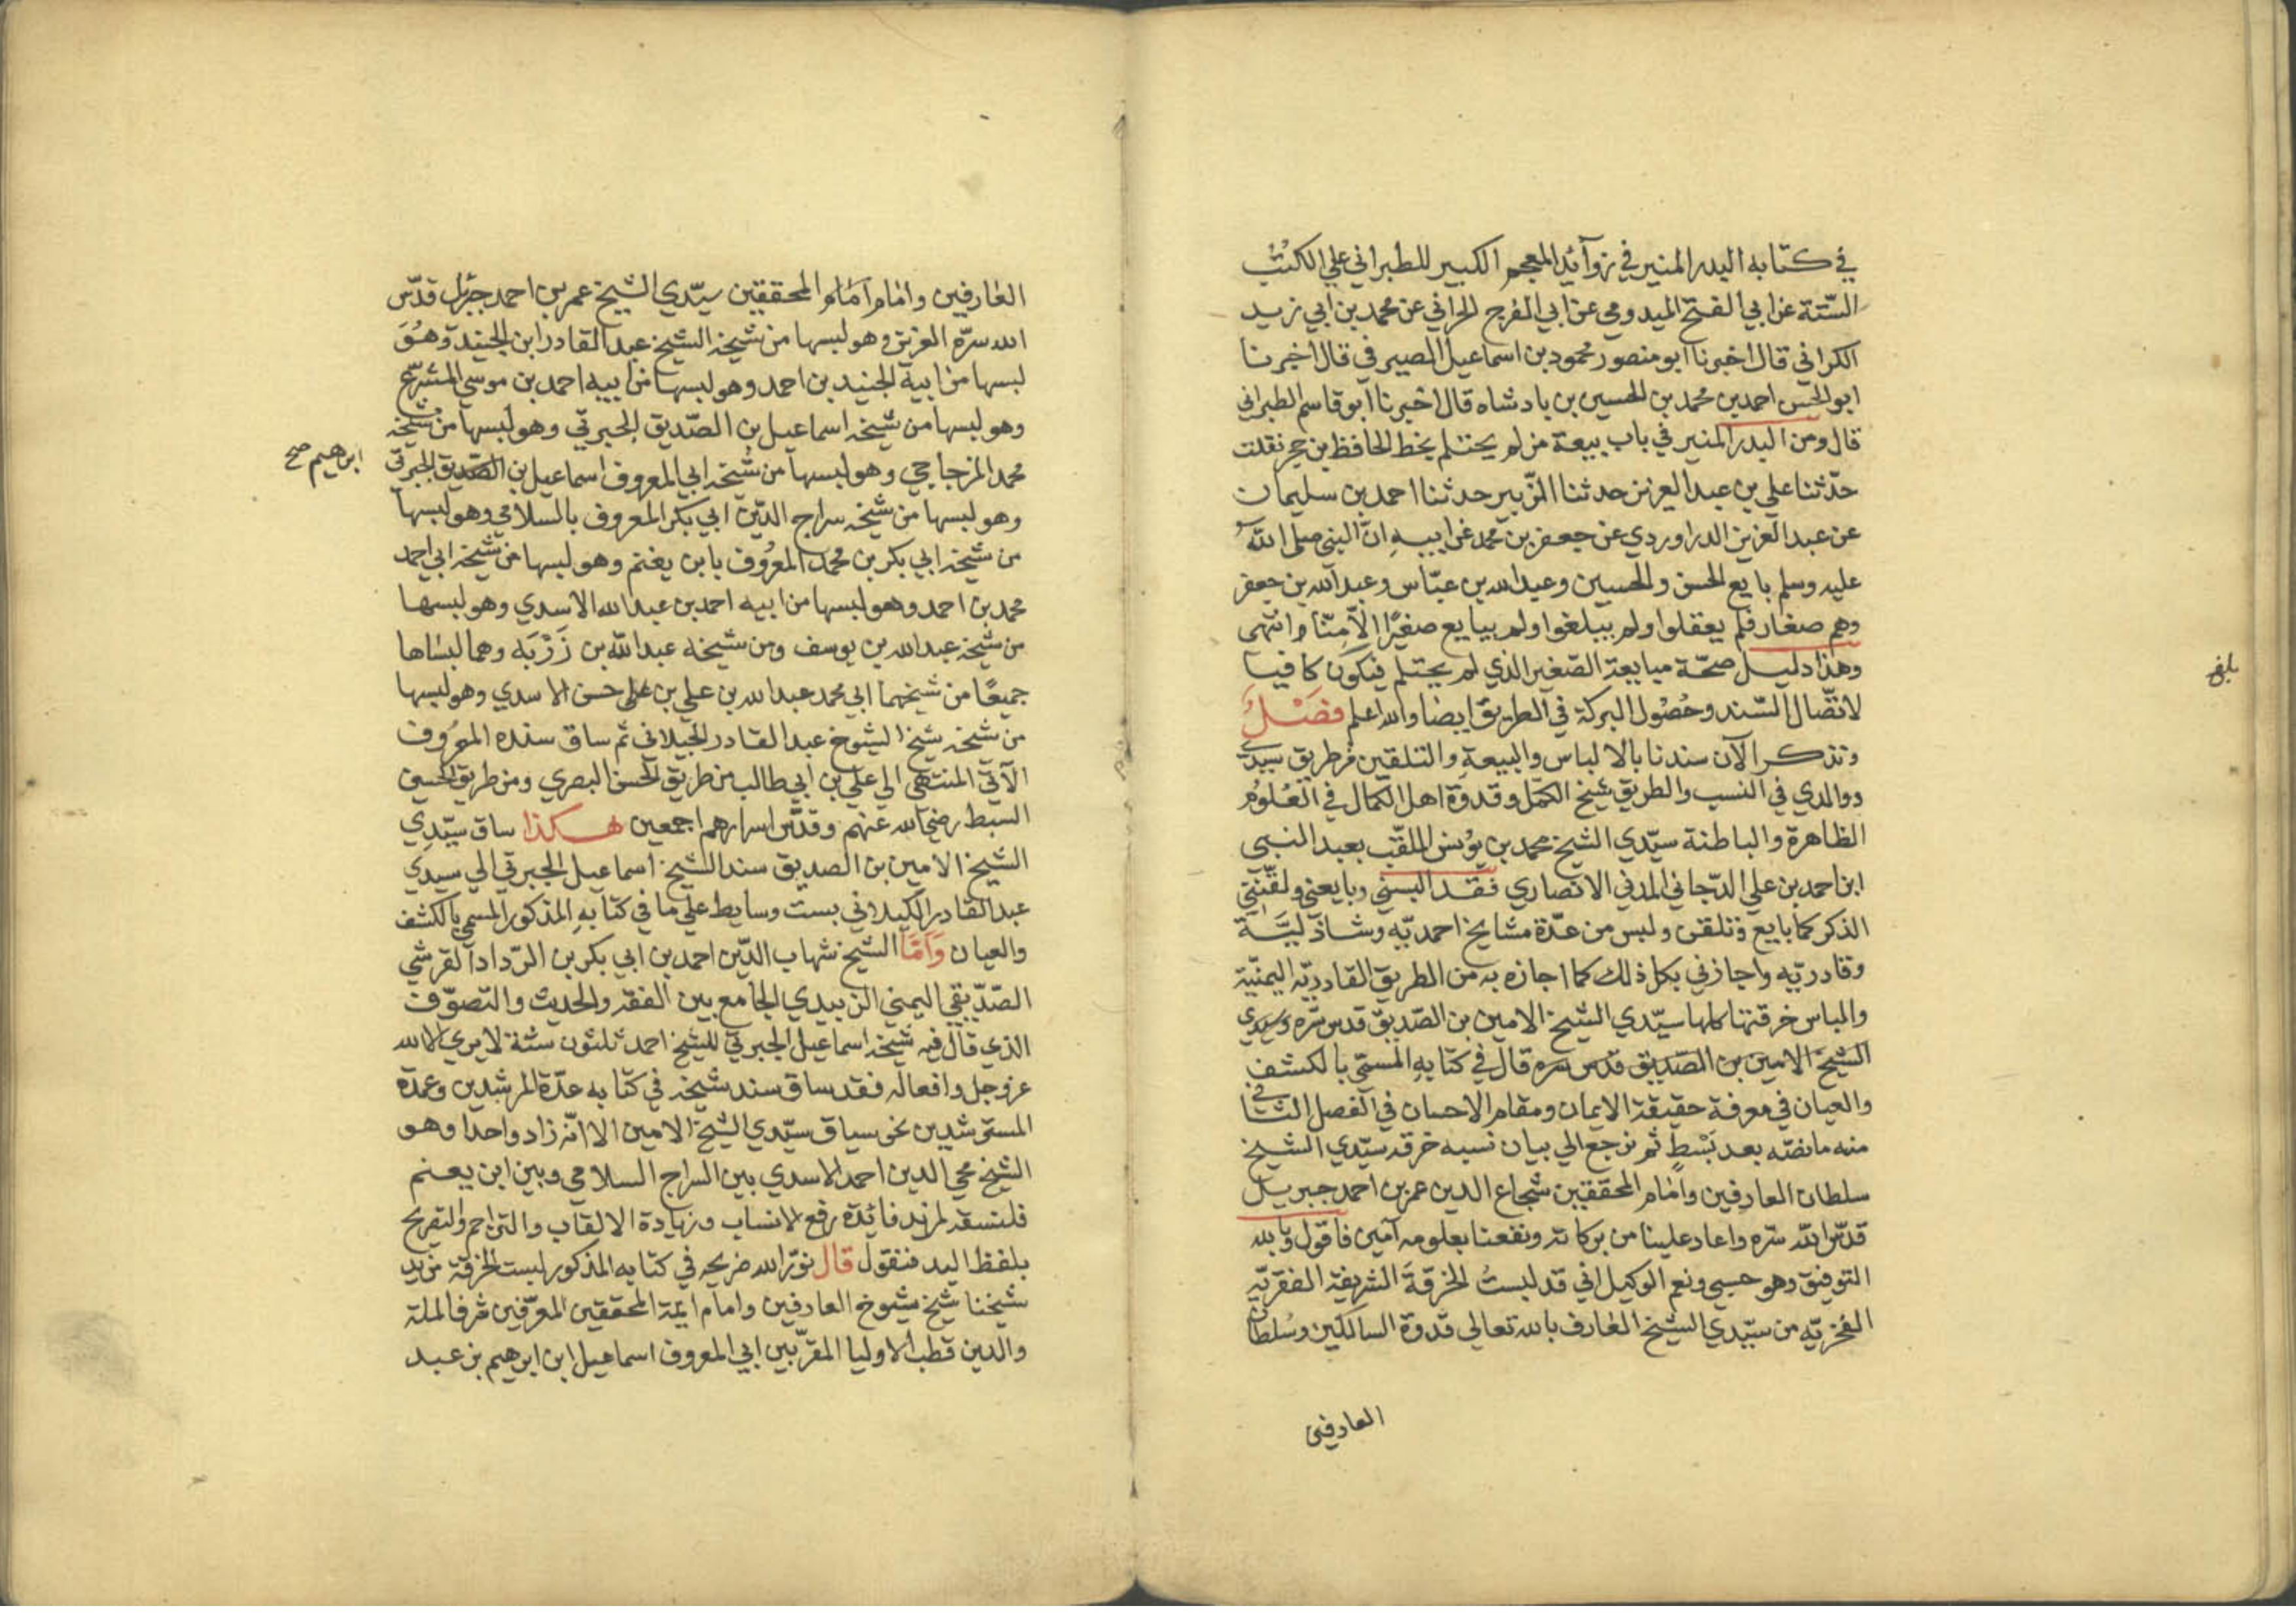 في كتابه البدر المنير في زوآئد المعجم الكبير للطبراني علي الكتب
الستّة عن ابي الفتح الميدومي عن ابي الفرج الحراني عن محمد بن ابي زيد
الكراني قال اخبرنا ابو منصور محمود بن اسماعيل الصيرفي قال اخبرنا
ابو الحسن احمد بن محمد بن الحسين بن بادشاه قال اخبرنا ابو قاسم الطبراني
قال ومن البدر المنير في باب بيعة من لم يحتلم بخط الحافظ بن حجر نقلت
حدّثنا علي بن عبد العزيز حدثنا الزّبير حدثنا احمد بن سليمان
عن عبد العزيز الدراوردي عن جعفر بن محمد عن ابيه انّ النبي صلى اللّه
عليه وسلم بايع الحسن والحسين وعبد الله بن عبّاس وعبد الله بن جعفر
وهم صغار فلم يعقلوا ولم يبلغوا ولم يبايع صغيرًا الّا مِنّا وانتهى
وهذا دليل صحّة مبايعة الصّغير الذي لم يحتلم فيكون كافيا
بلغ
لاتّصال السّند وحُصُول البركة في الطريق ايضا والله اعلم فَصْلٌ
ونذكر الآن سندنا بالالباس والبيعةِ والتلقين من طريق سيدي
ووالدي في النسب والطريق شيخ الكمّل وقدوة اهل الكمال في العُلوُم
الظاهرة والباطنة سيّدي الشيخ محمد بن يُونس الملقّب بعبد النبى
ابن احمد بن علي الدّجاني المدني الانصاري فقد البسني وبايعني ولقّنني
الذكر كما بايع وتلقن ولبس من عدّة مشايخ احمديّه وشاذليَّة
وقادريّه واجازني بكل ذلك كما اجازه به من الطريق القادريّه اليمنيّة
والباس خرقتها كلها سيّدي الشيخ الامين بن الصّديق قدس سّره وسيدي
الشيخ الامين بن الصّديق قدس سره قال في كتابهِ المسمّى بالكشف
والعيان في معرفة حقيقة الايمان ومقام الاحسان في الفصل الثاني
منه ما نصّه بعد بَسْطٍ ثم نرجع الي بيان نسبه خرقه سيّدي الشيخ
سلطان العارفين وامام المحققين شجاع الدين عمر بن احمد جبريل
قدّس اللّه سّره واعاد علينا من بركاته ونفعنا بعلومه آمين فاقول وبالله
التوفيق وهو حسبي ونعم الوكيل اني قد لبستُ الخرقةَ الشريفة الفقريّه
الفخريّه من سيّدي الشيخ العارف بالله تعالى قدوة السالكين وسُلطان
العارفين
العارفين وامام آمام المحققين سيّدي الشيخ عمر بن احمد جبرئل قدّس
الله سرّه العزيز وهو لبسها من شيخه الشيخ عبد القادر ابن الجنيد وَهُوَ
لبسها من ابيه الجنيد بن احمد وهو لبسها من ابيه احمد بن موسي المشرّع
وهو لبسها من شيخه اسماعيل بن الصّديق الجبرتي وهو لبسها من شيخه
محمد المزجاجي وهو لبسها من شيخه ابي المعروف اسماعيل بن الصّديق الجبرتي
ابرهيم صح
وهو لبسها من شيخه سراج الدّين ابي بكر المعروف بالسلامي وهو لبسها
من شيخه ابي بكر بن محمد المعُروف بابن يغنم وهو لبسها من شيخه ابي احمد
محمد بن احمد وهو لبسها من ابيه احمد بن عبد الله الاسدي وهو لبسها
من شيخه عبد الله بن يوسف ومن شيخه عبد اللّه بن زَرْبَه وهما لبساها
جميعًا من شيخهما ابي محمد عبد الله بن علي بن حسن الاسدي وهو لبسها
من شيخه شيخ الشيوخ عبد القادر الجيلاني ثم ساق سنده المعرُوف
الآتي المنتهى الي علي بن ابي طالب من طريق الحسن البصري ومن طريق الحسين
السبط رضي الله عنهم وقدّس اسرارهم اجمعين هكذا ساق سيّدِي
الشيخ الامين بن الصديق سند الشيخ اسماعيل الجبرتي الي سيدِي
عبد القادر الكيلاني بست وسايط علي ما في كتابهِ المذكور المسمي بالكشف
والعيان وَامّا الشيخ شهاب الدّين احمد بن ابي بكر بن الرّداد القرشي
الصّدّيقي اليمني الزبيدي الجامع بين الفقه والحديث والتصوّف
الذي قال فيه شيخه اسماعيل الجبرتي للشيخ احمد ثلثون سنة لا يري الا الله
عز وجل وافعاله فقد ساق سند شيخه في كتابه عدّة المرشدين وعمدة
المسترشدين نحو سياق سيّدي الشيخ الامين الا انّه زاد واحدا وهو
الشيخ محي الدين احمد الاسدي بين السراج السلامي وبين ابن يغنم
فلنسقه لمزيد فائدة رفع الانساب وزيادة الالقاب والتراجم والتصريح
بلفظ اليد فنقول قال نوّر الله ضريحه في كتابه المذكور لبست الخرقة من يد
شيخنا شيخ شيوخ العارفين وامام ايمة المحققين المعرّفين شرف الملة
والدين قطب الاوليا المقرّبين ابي المعروف اسماعيل ابن ابرهيم بن عبد